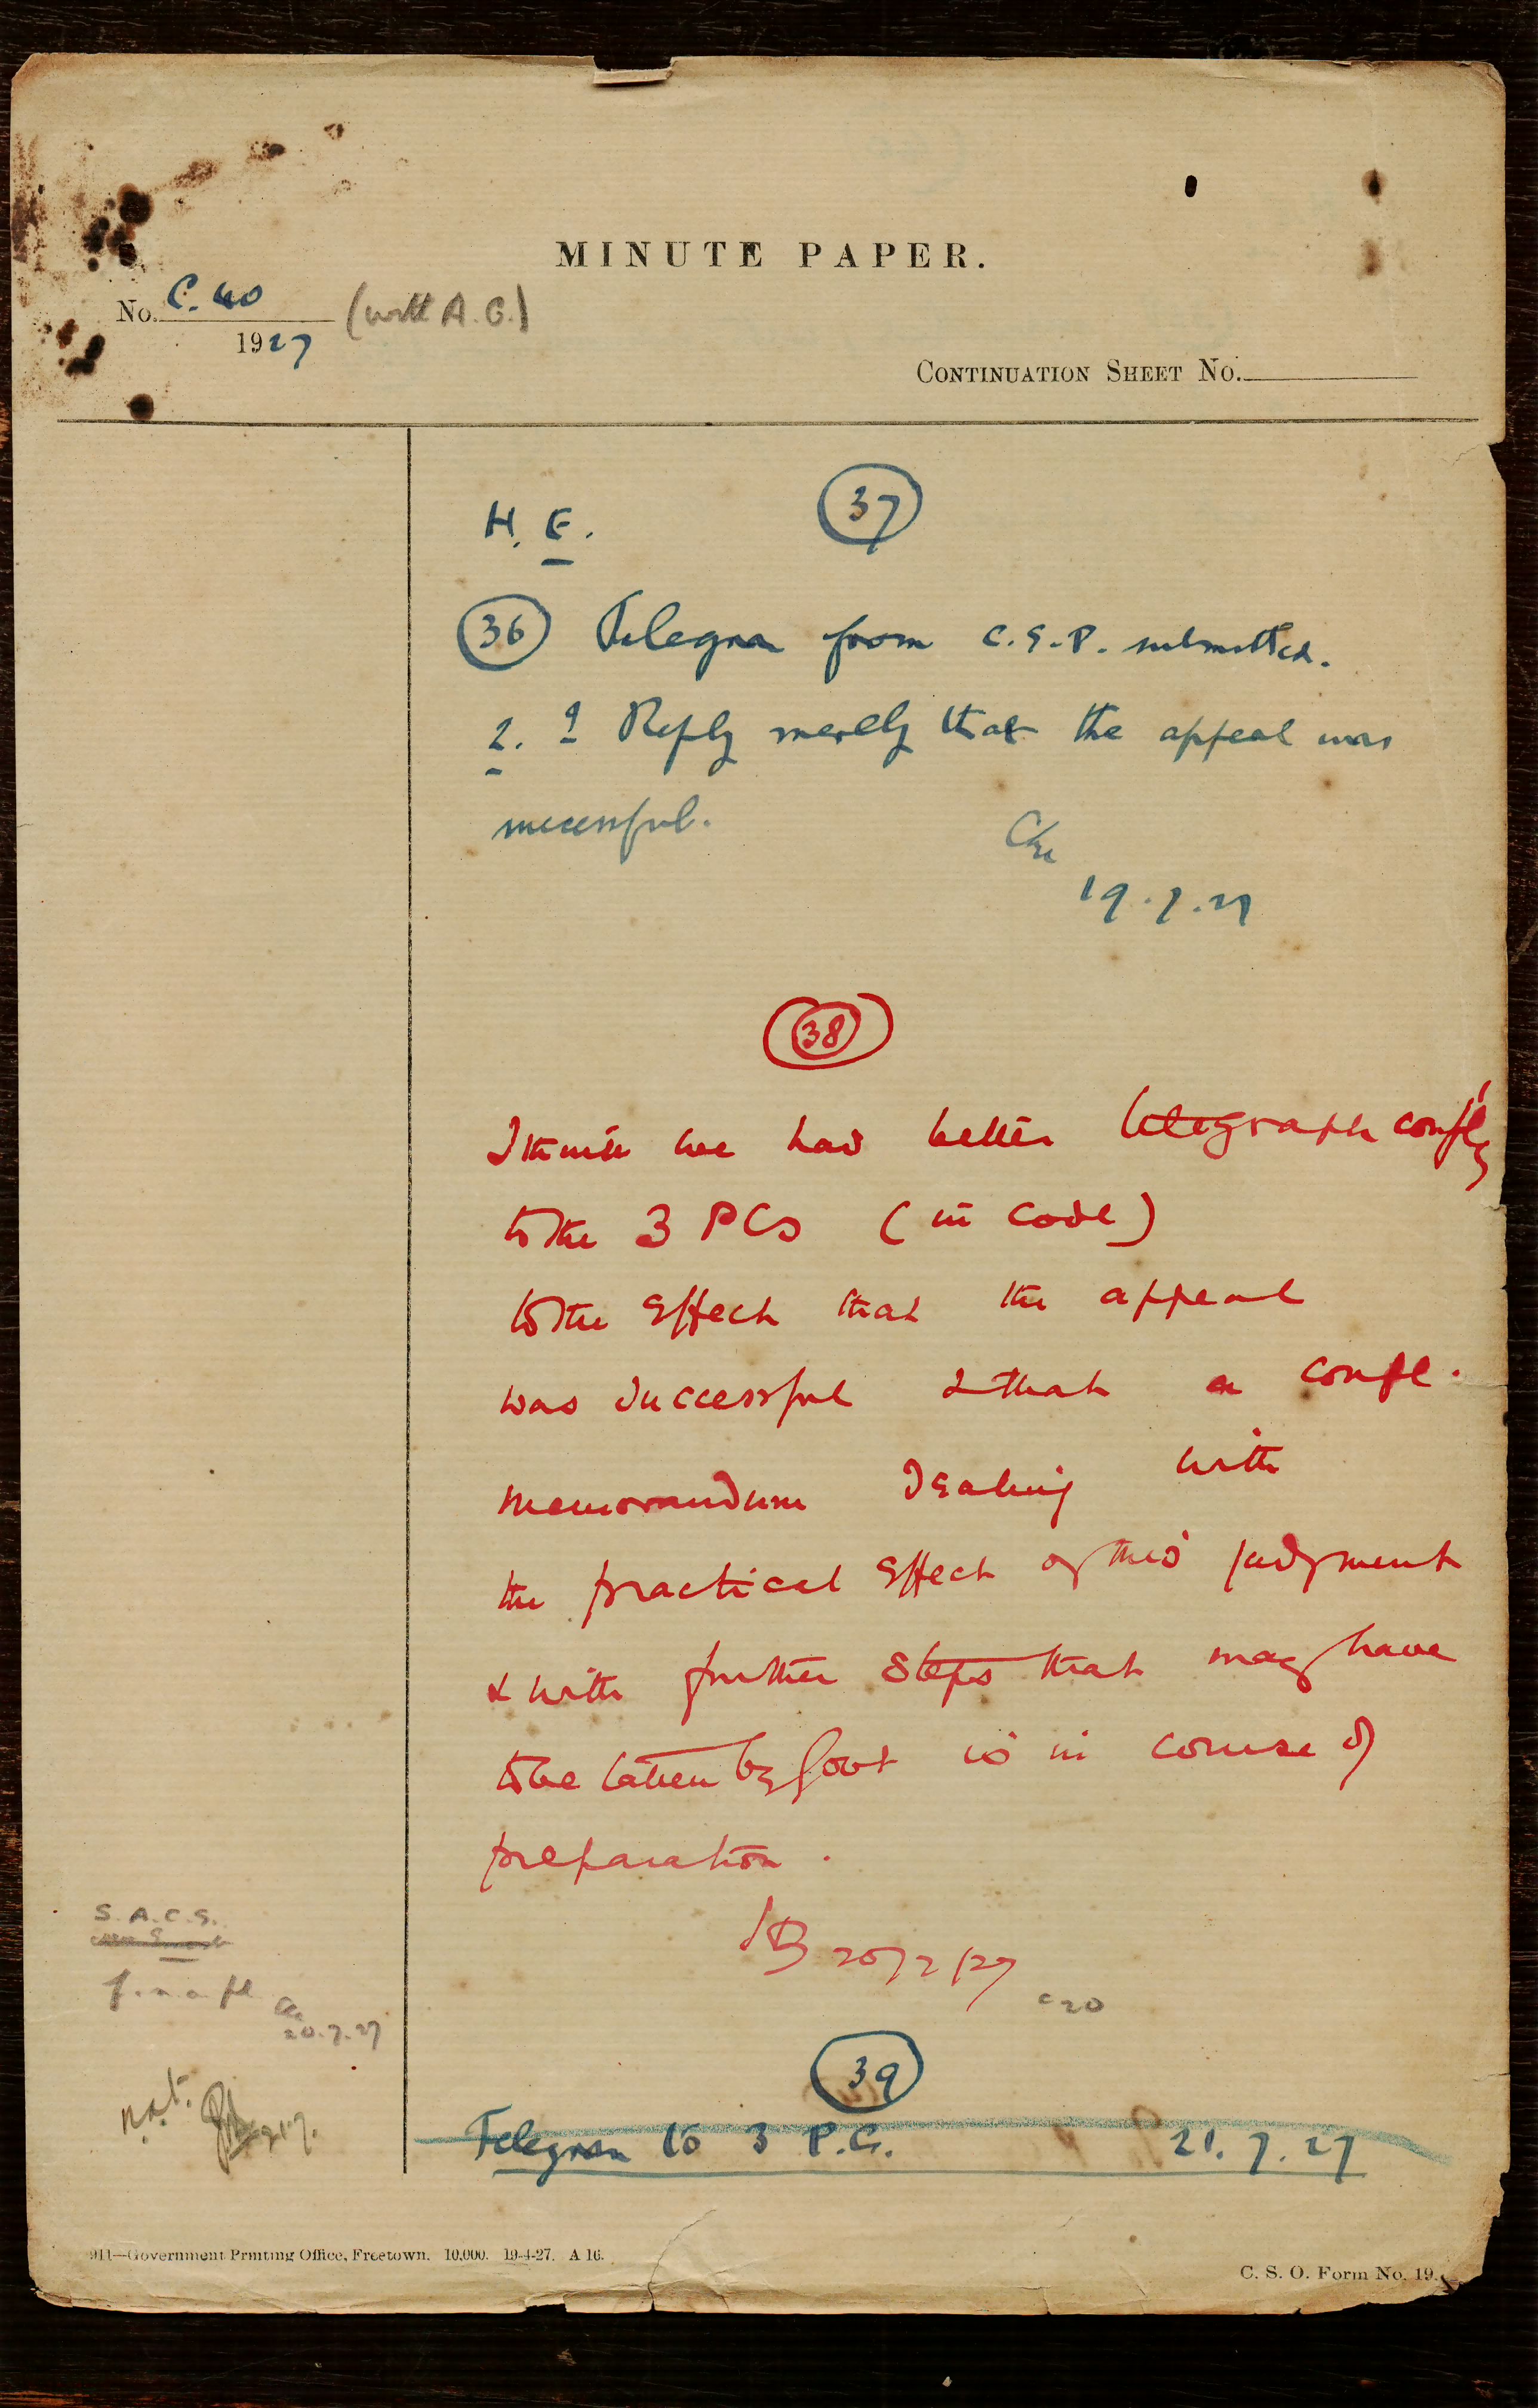 MINUTE PAPER.
No. C. 40 (with A. G.)
1927
CONTINUATION SHEET No.
37
H. E.
36 Telegram from C.S.P. submitted.
2. ? Reply merely that the appeal was
successful.
19.7.27
38
I think we had better telegraph confly
to the 3 PCs (in code)
to the effect that the appeal
was successful & that a confl.
memorandum dealing with
the practical effect of this judgment
& with further steps that may have
to be taken by Govt is in course of
preparation.
20/7/27
C20
S. A. C. S.
f. n. a. pl
20.7.27
39
n.t. 21.7.
Telegram to 3 P.C. 21.7.27
911—Government Printing Office, Freetown. 10,000. 19-4-27. A 16.
C. S. O. Form No. 19.